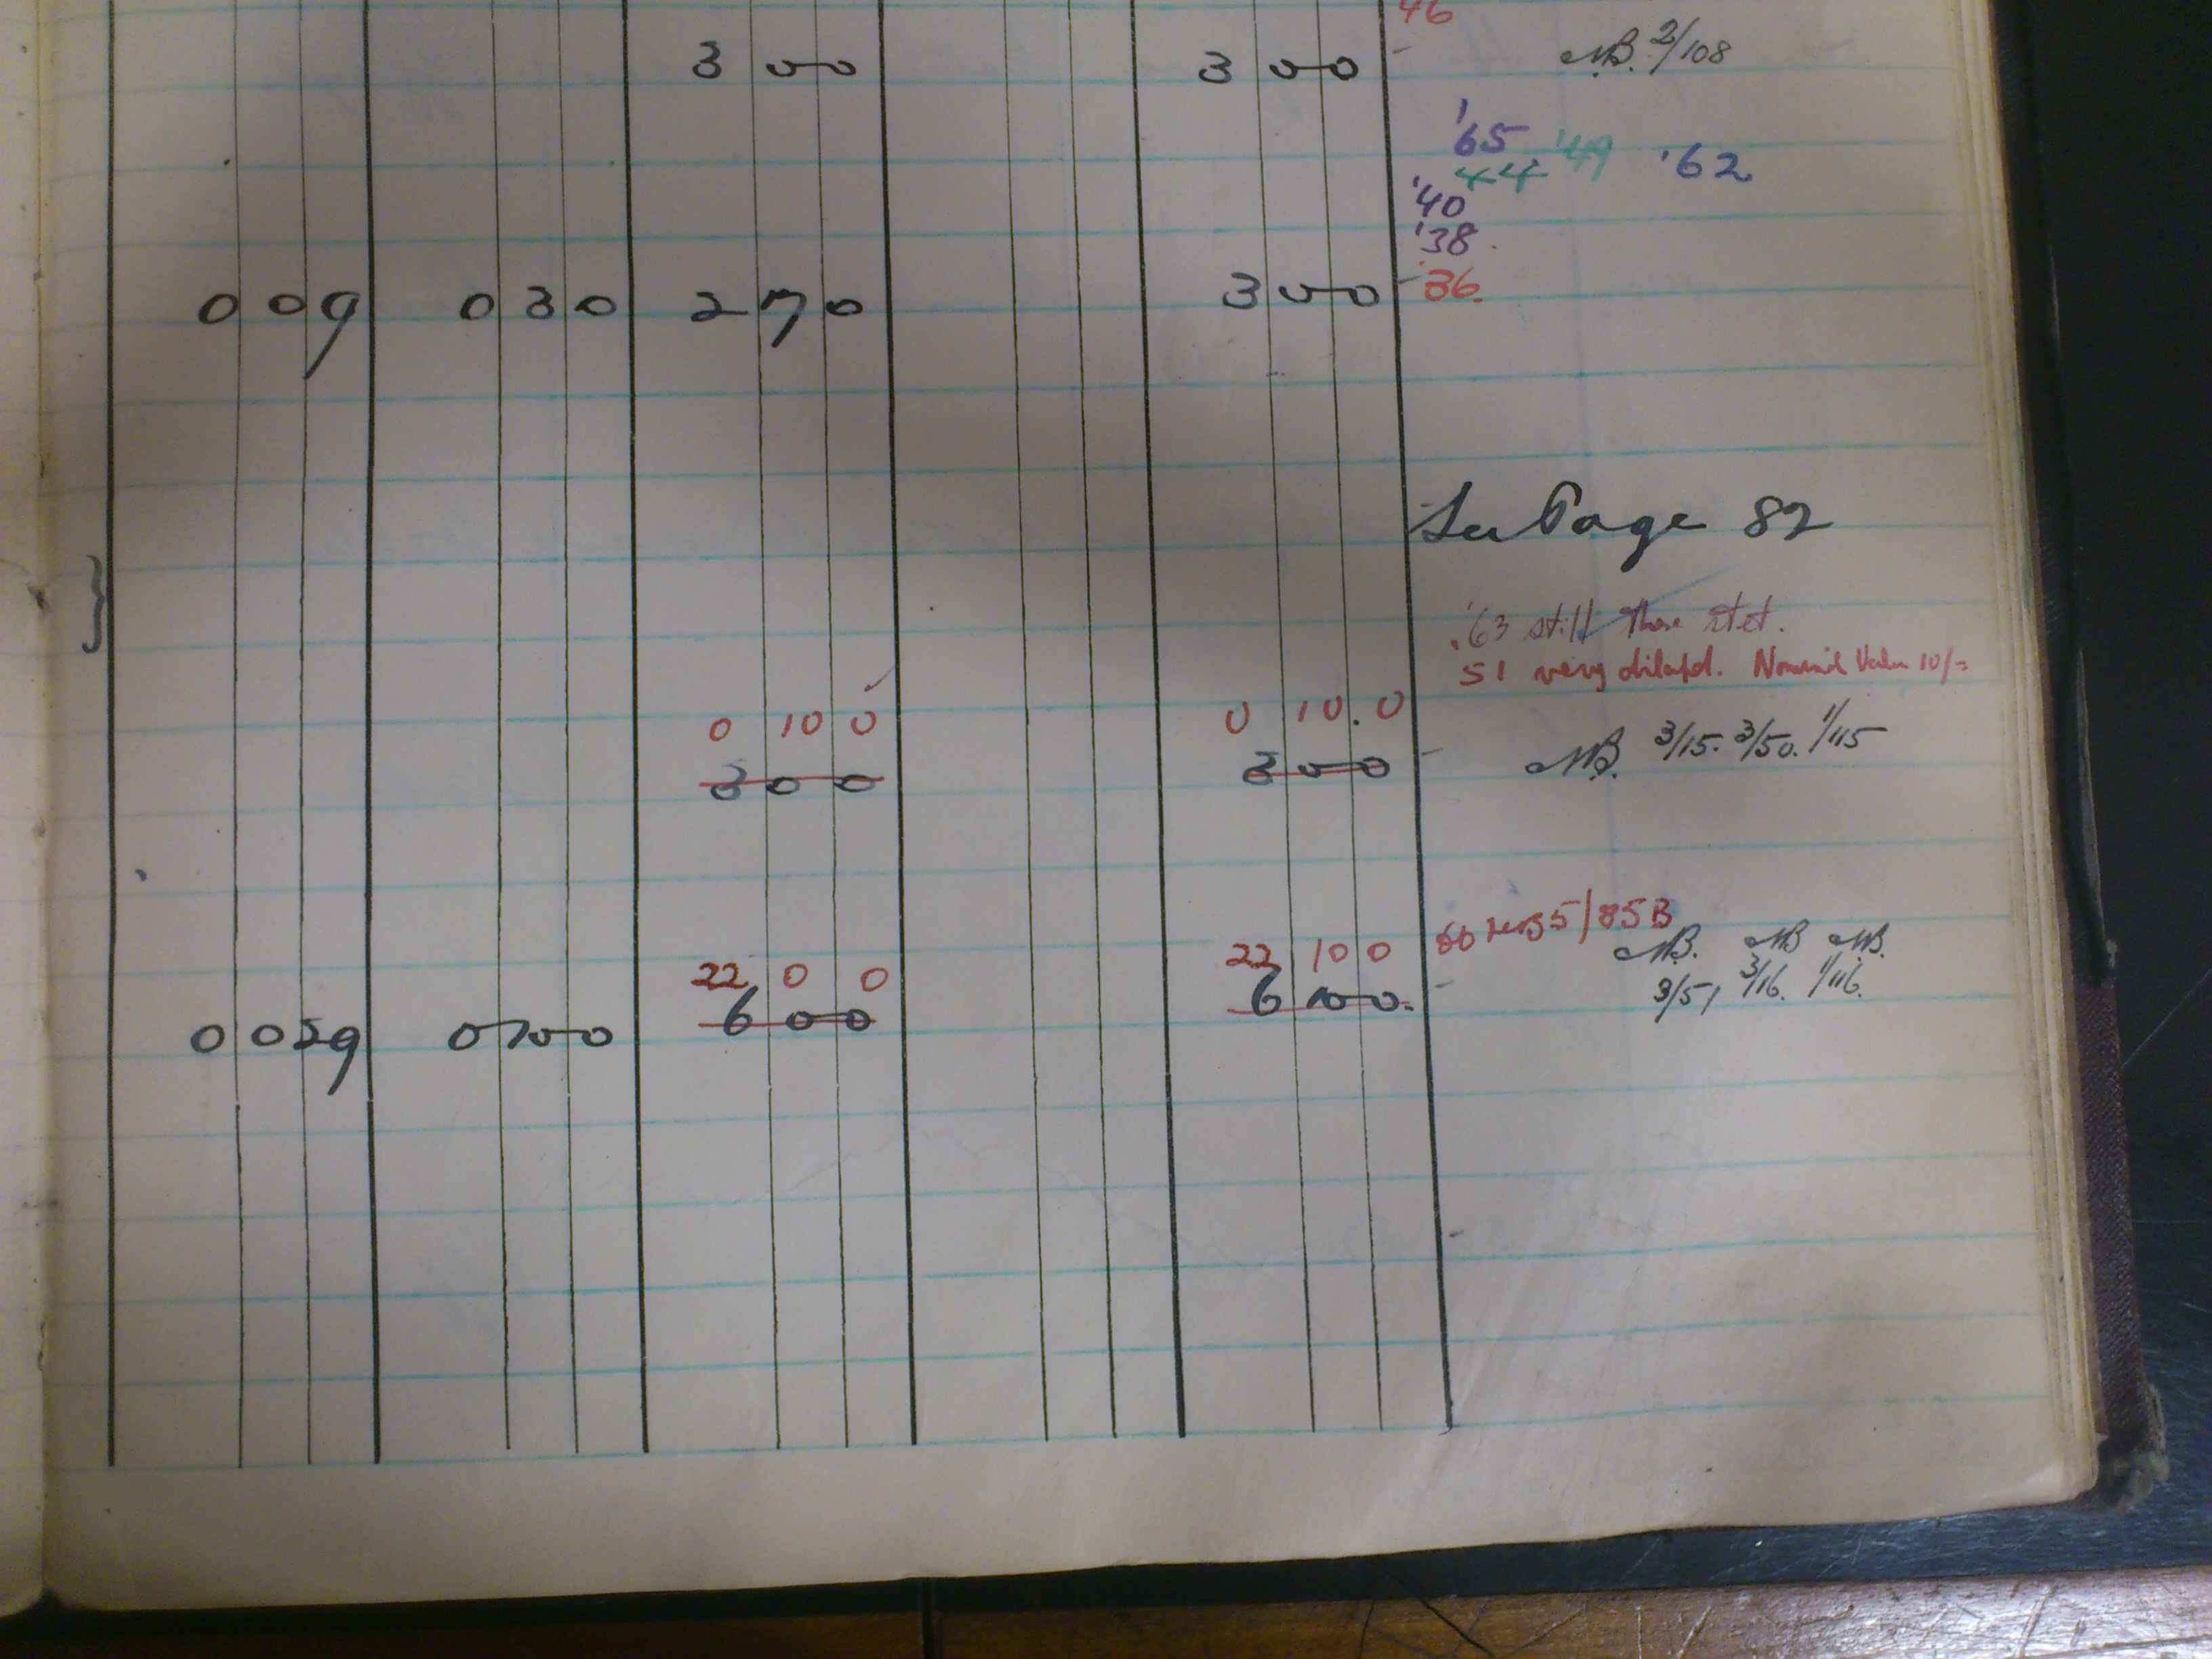 46
3 0 0 3 0 0 NB. 2/108
'65 '49 '62
44
'40
'38.
0 0 9 0 3 0 2 7 0 3 0 0 36.
See Page 82
'63 still there stet.
51 very dilapd. Nominal Value 10/-
0 10 0 0 10.0
3 0 0 3 0 0 NB. 3/15. 3/50. 1/115
60 5/85B
22 0 0 22 10 0 NB. NB NB.
0 0 0 10 0 6 0 0 6 10 0. 3/51 3/16. 1/116.